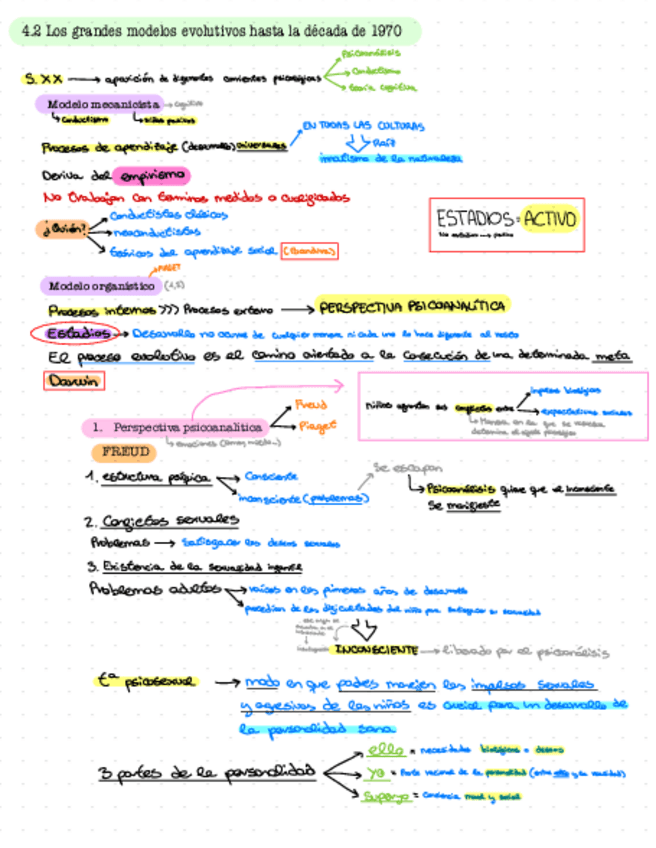 4.2 Los grandes modelos evolutivos hasta la década de 1970
Psicoanálisis
S. XX → aparición de diferentes corrientes psicológicas
Conductismo
teoría cognitiva
Modelo mecanicista → cognitivo
↳ Conductismo ↳ niños pasivos
EN TODAS LAS CULTURAS
Procesos de aprendizaje (desarrollo) universales
RAÍZ
innatismo de la naturaleza
Deriva del empirismo
No trabajan con términos medidos o cualificados
¿Quién?
Conductistas clásicos
neoconductistas
teóricos del aprendizaje social (Bandura)
ESTADIOS = ACTIVO
No estadios → pasivo
PIAGET
Modelo organístico (4,5)
Procesos internos >>> Procesos externo → PERSPECTIVA PSICOANALÍTICA
Estadios → Desarrollo no ocurre de cualquier manera ni cada uno lo hace diferente al resto
El proceso evolutivo es el camino orientado a la consecución de una determinada meta
Darwin
1. Perspectiva psicoanalítica
Freud
Piaget
↳ emociones (amor, miedo...)
impulsos biológicos
Niños afrontan sus conflictos entre
expectativas sociales
↳ Manera en la que se resuelva
determina el ajuste psicológico
FREUD
1. estructura psíquica
Consciente
inconsciente (problemas)
Se escapan
↳ Psicoanálisis quiere que el inconsciente
se manifieste
2. Conflictos sexuales
Problemas → Satisfacer los deseos sexuales
3. Existencia de la sexualidad infantil
Problemas adultos
raíces en los primeros años de desarrollo
procedían de las dificultades del niño para satisfacer su sexualidad
INCONSCIENTE → liberado por el psicoanálisis
tª psicosexual → modo en que padres manejen los impulsos sexuales
y agresivos de los niños es crucial para un desarrollo de
la personalidad sana
3 partes de la personalidad
ello = necesidades biológicas o deseos
yo = Parte racional de la personalidad (entre ello y la realidad)
Superyo = Conciencia moral y social